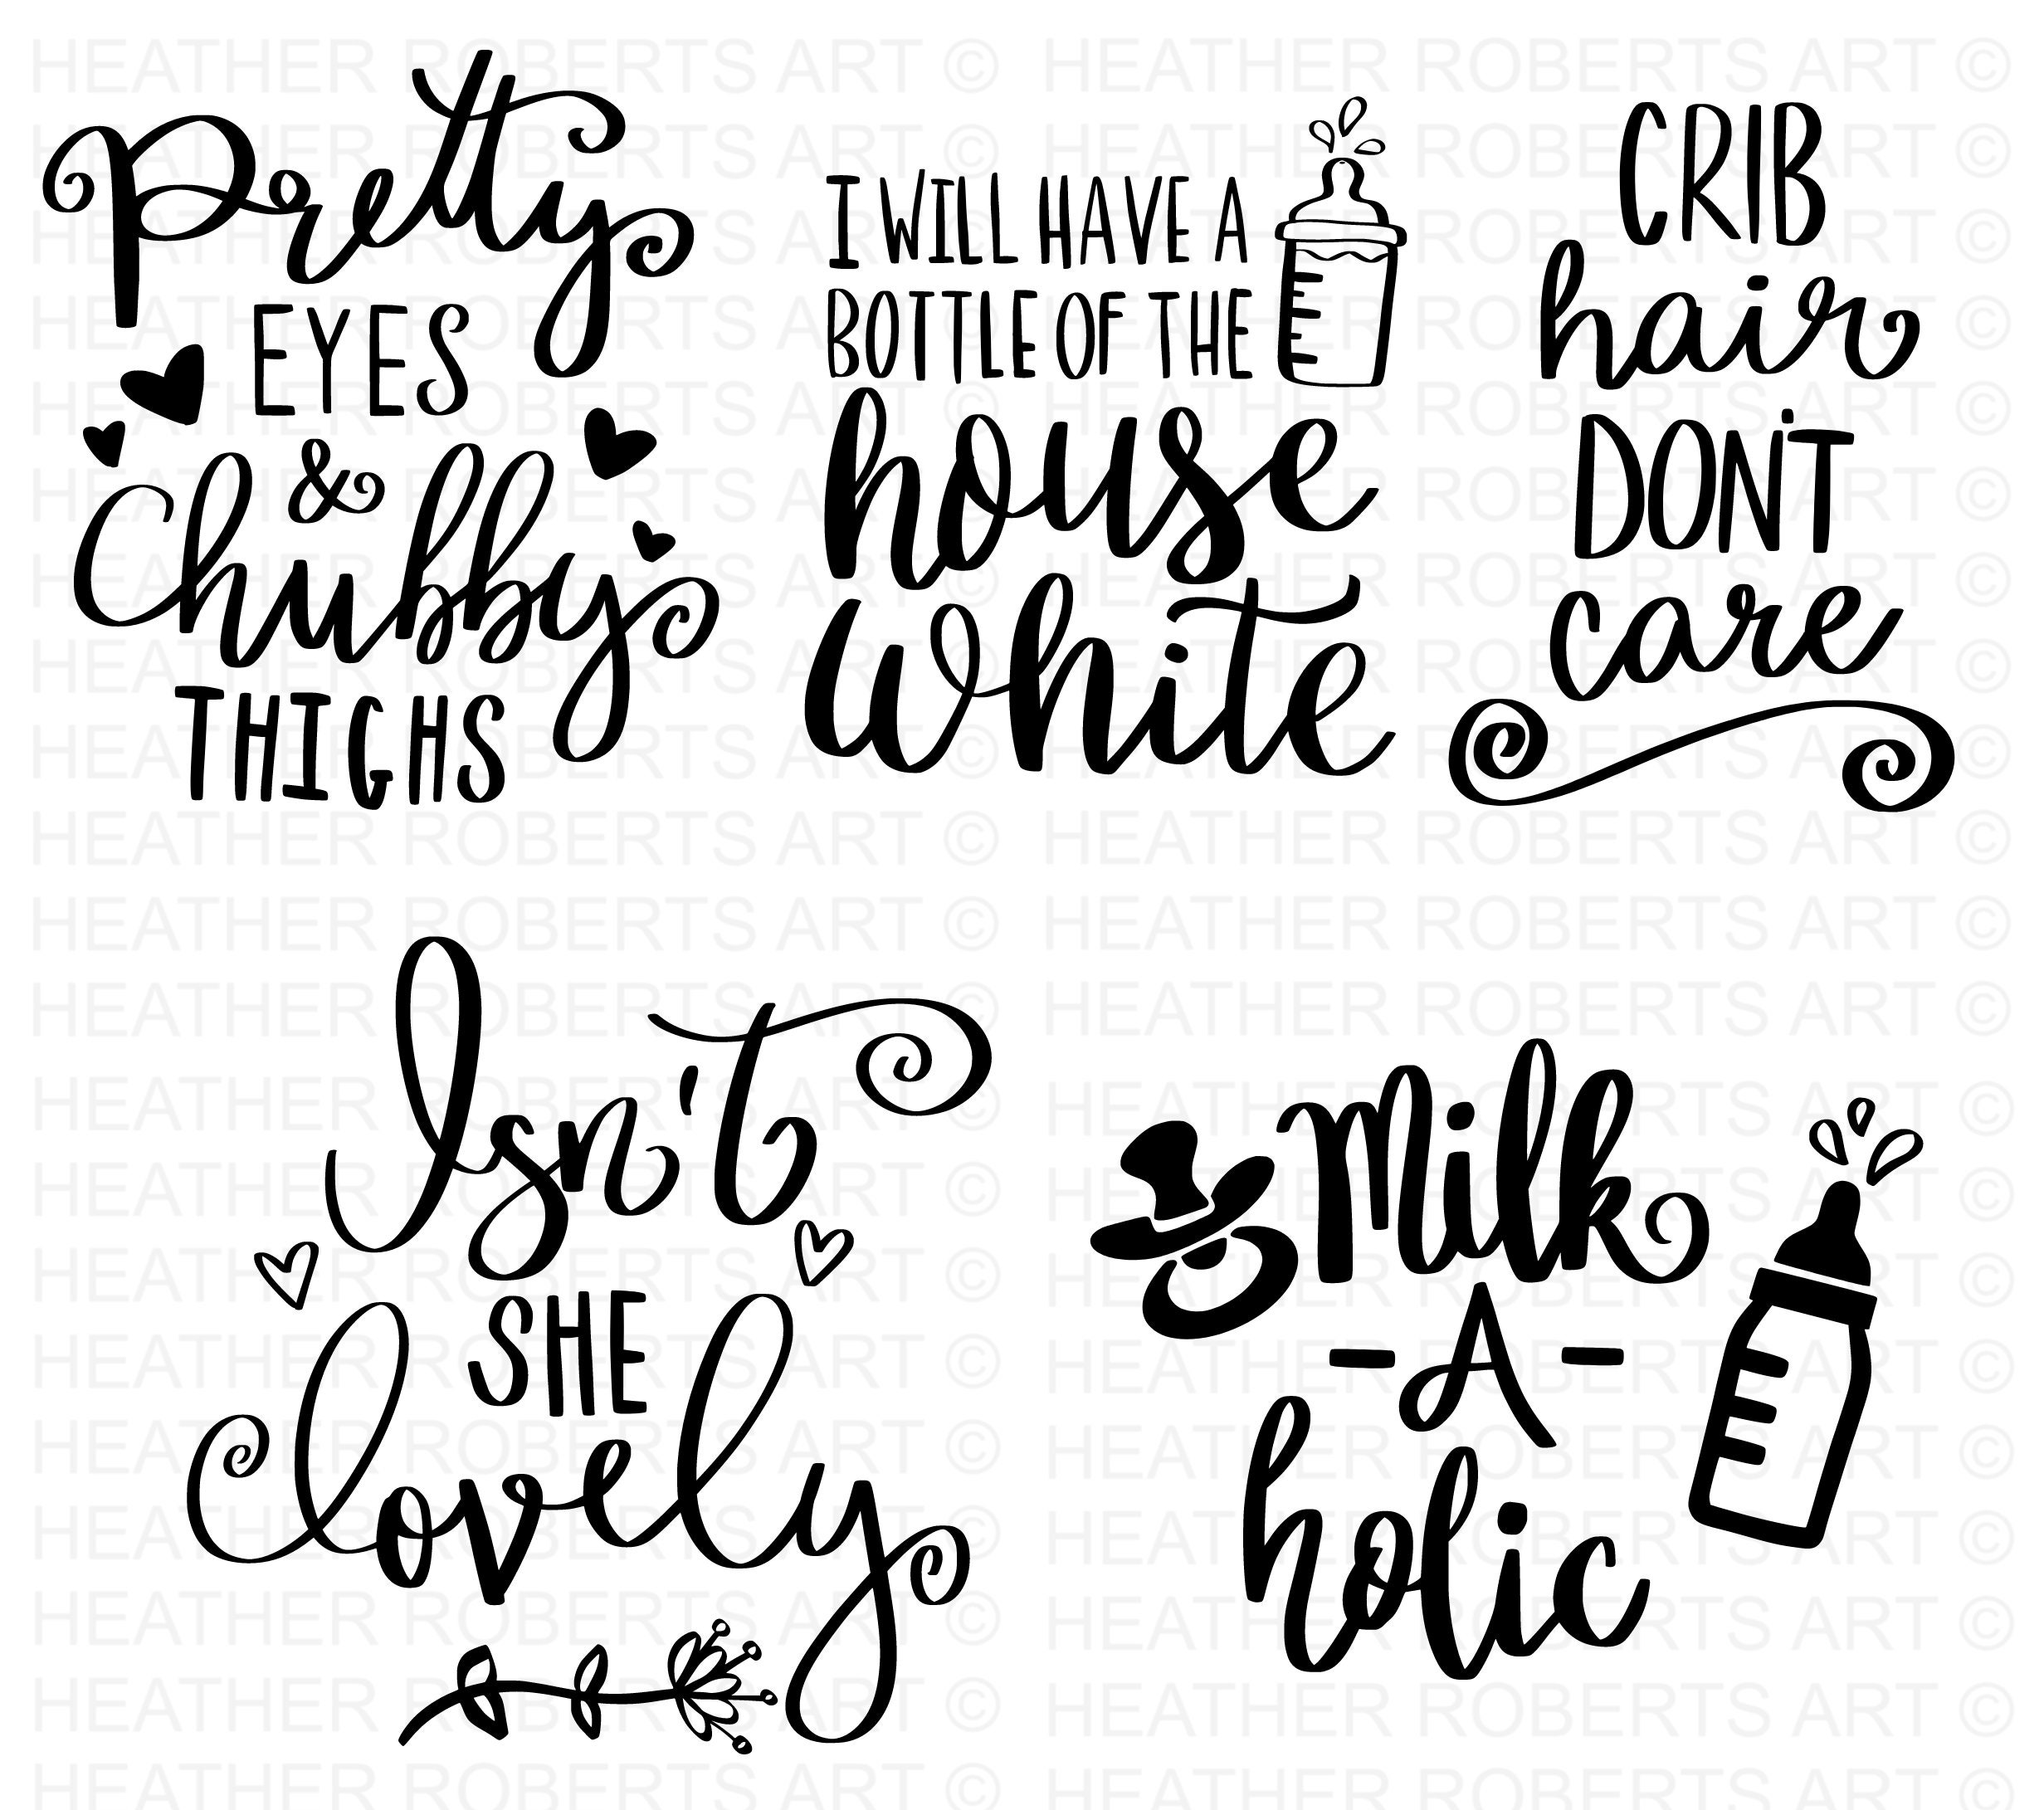 Pretty
EYES
&
Chubby
THIGHS
I WILL HAVE A
BOTTLE OF THE
house
white
CRIB
hair
DON'T
care
Isn't
SHE
lovely
Milk
-A-
holic
HEATHER ROBERTS ART © HEATHER ROBERTS ART ©